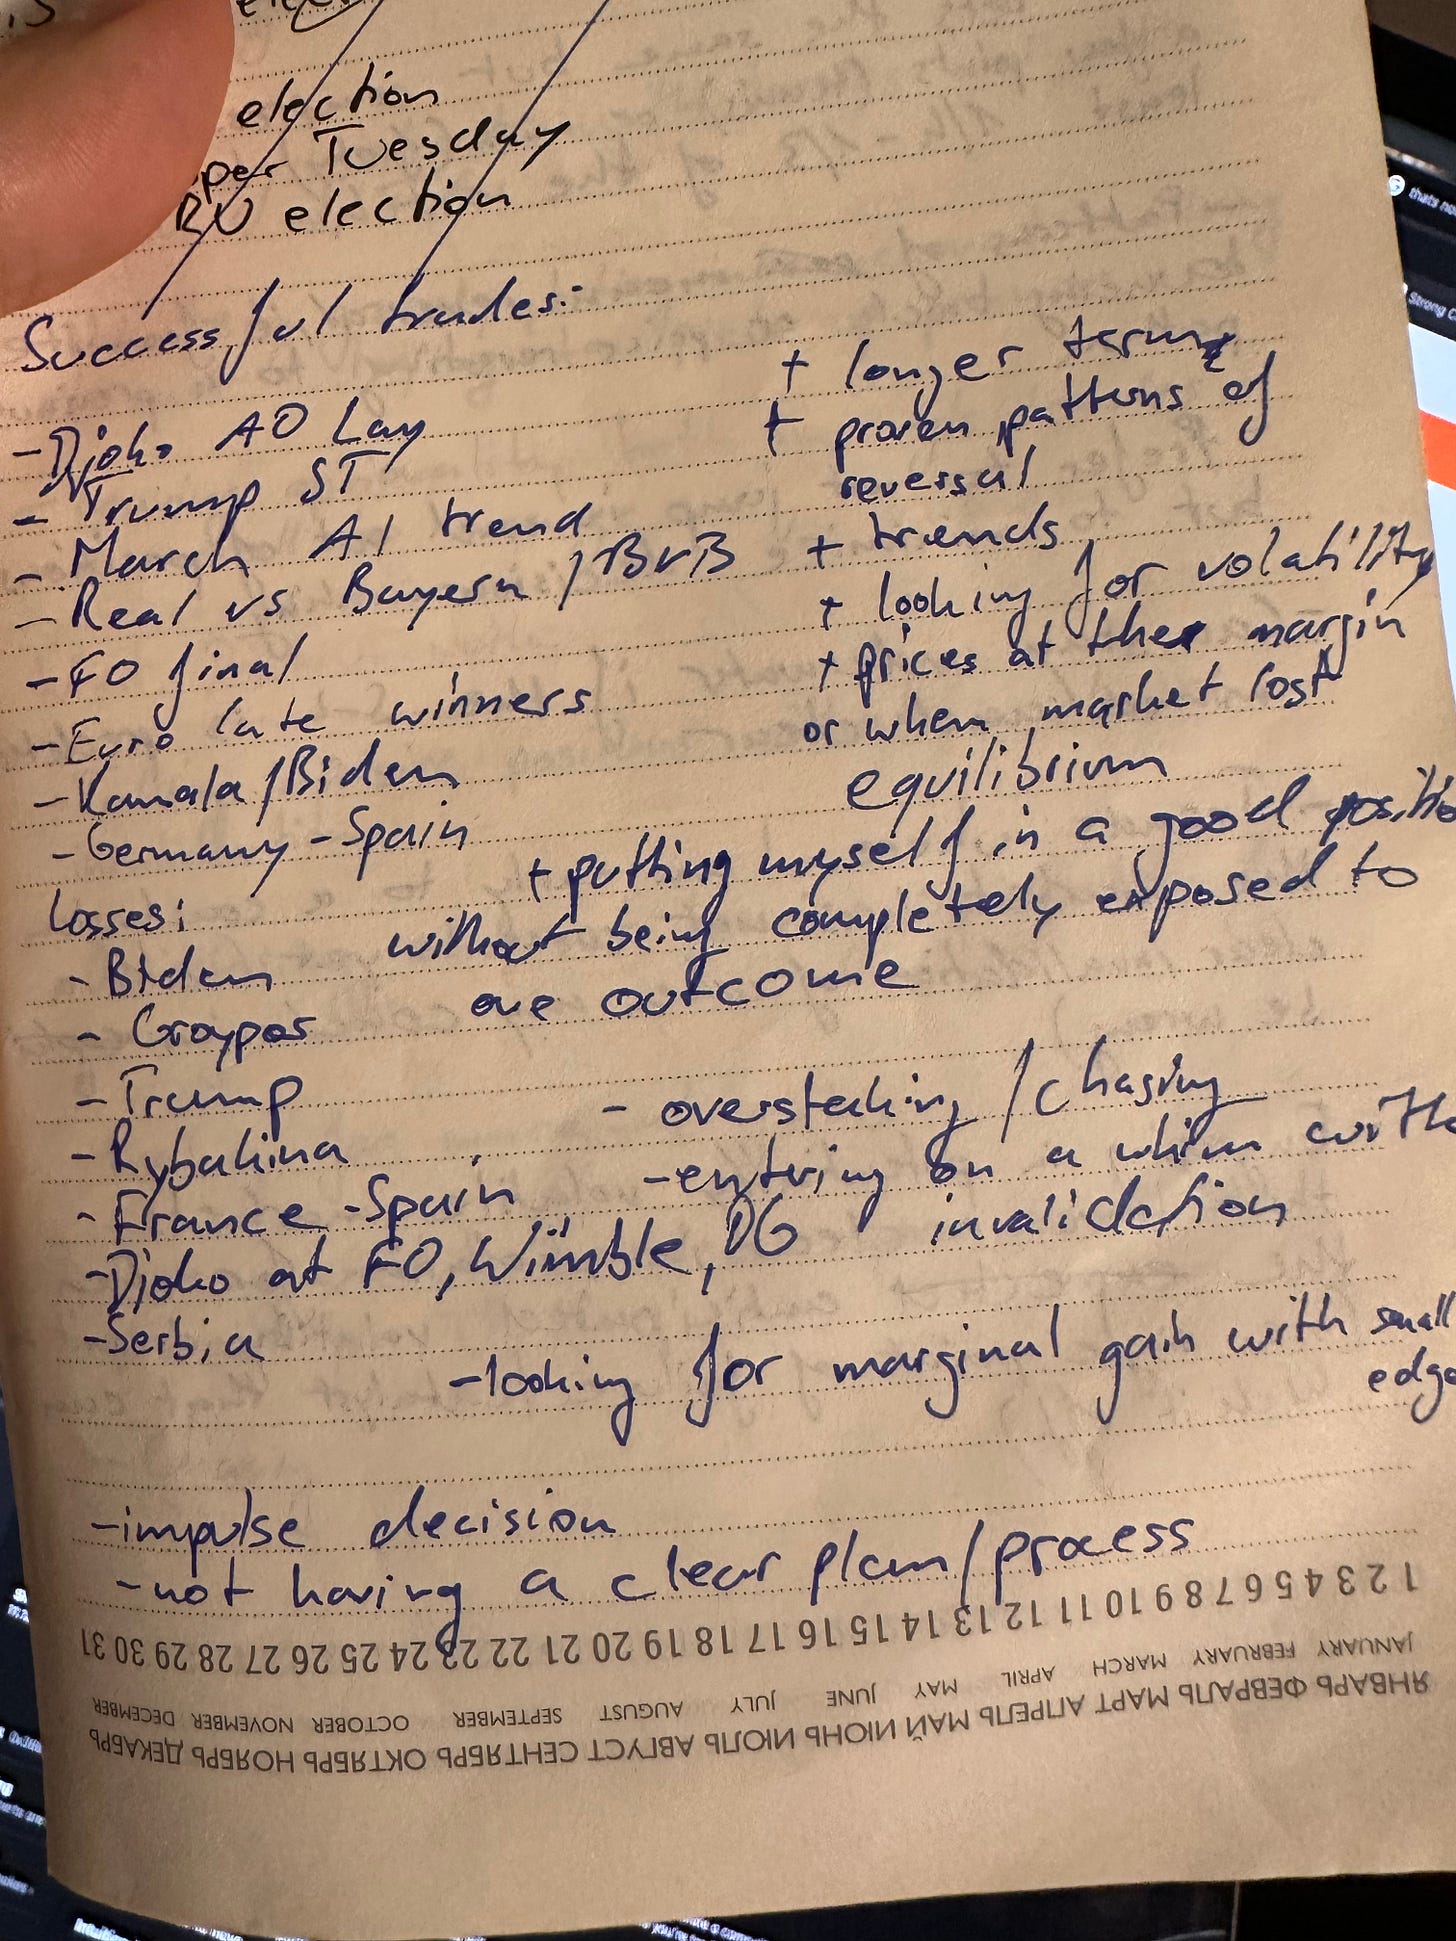 election
Tuesday
RU election
Successful trades:
- Djoko AO Lay
- Trump ST
- March AI trend
- Real vs Bayern / BVB
- FO final
- Euro late winners
- Kamala/Biden
- Germany - Spain
+ longer term
+ proven patterns of
reversal
+ trends
+ looking for volatility
+ prices at the margin
or when market lost
equilibrium
+ putting myself in a good positio
without being completely exposed to
one outcome
Losses:
- Biden
- Groyper
- Trump
- Rybakina
- France - Spain
- Djoko at FO, Wimble, OG
- Serbia
- overstaking/chasing
- entering on a whim witho
invalidation
- looking for marginal gain with small
edge
- impulse decision
- not having a clear plan/process
1 2 3 4 5 6 7 8 9 10 11 12 13 14 15 16 17 18 19 20 21 22 23 24 25 26 27 28 29 30 31
JANUARY FEBRUARY MARCH APRIL MAY JUNE JULY AUGUST SEPTEMBER OCTOBER NOVEMBER DECEMBER
ЯНВАРЬ ФЕВРАЛЬ МАРТ АПРЕЛЬ МАЙ ИЮНЬ ИЮЛЬ АВГУСТ СЕНТЯБРЬ ОКТЯБРЬ НОЯБРЬ ДЕКАБРЬ